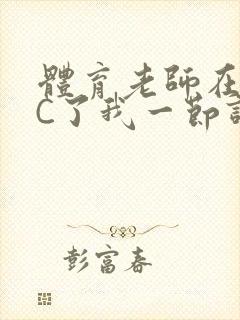 體育老師在
C了我一節
彭富春